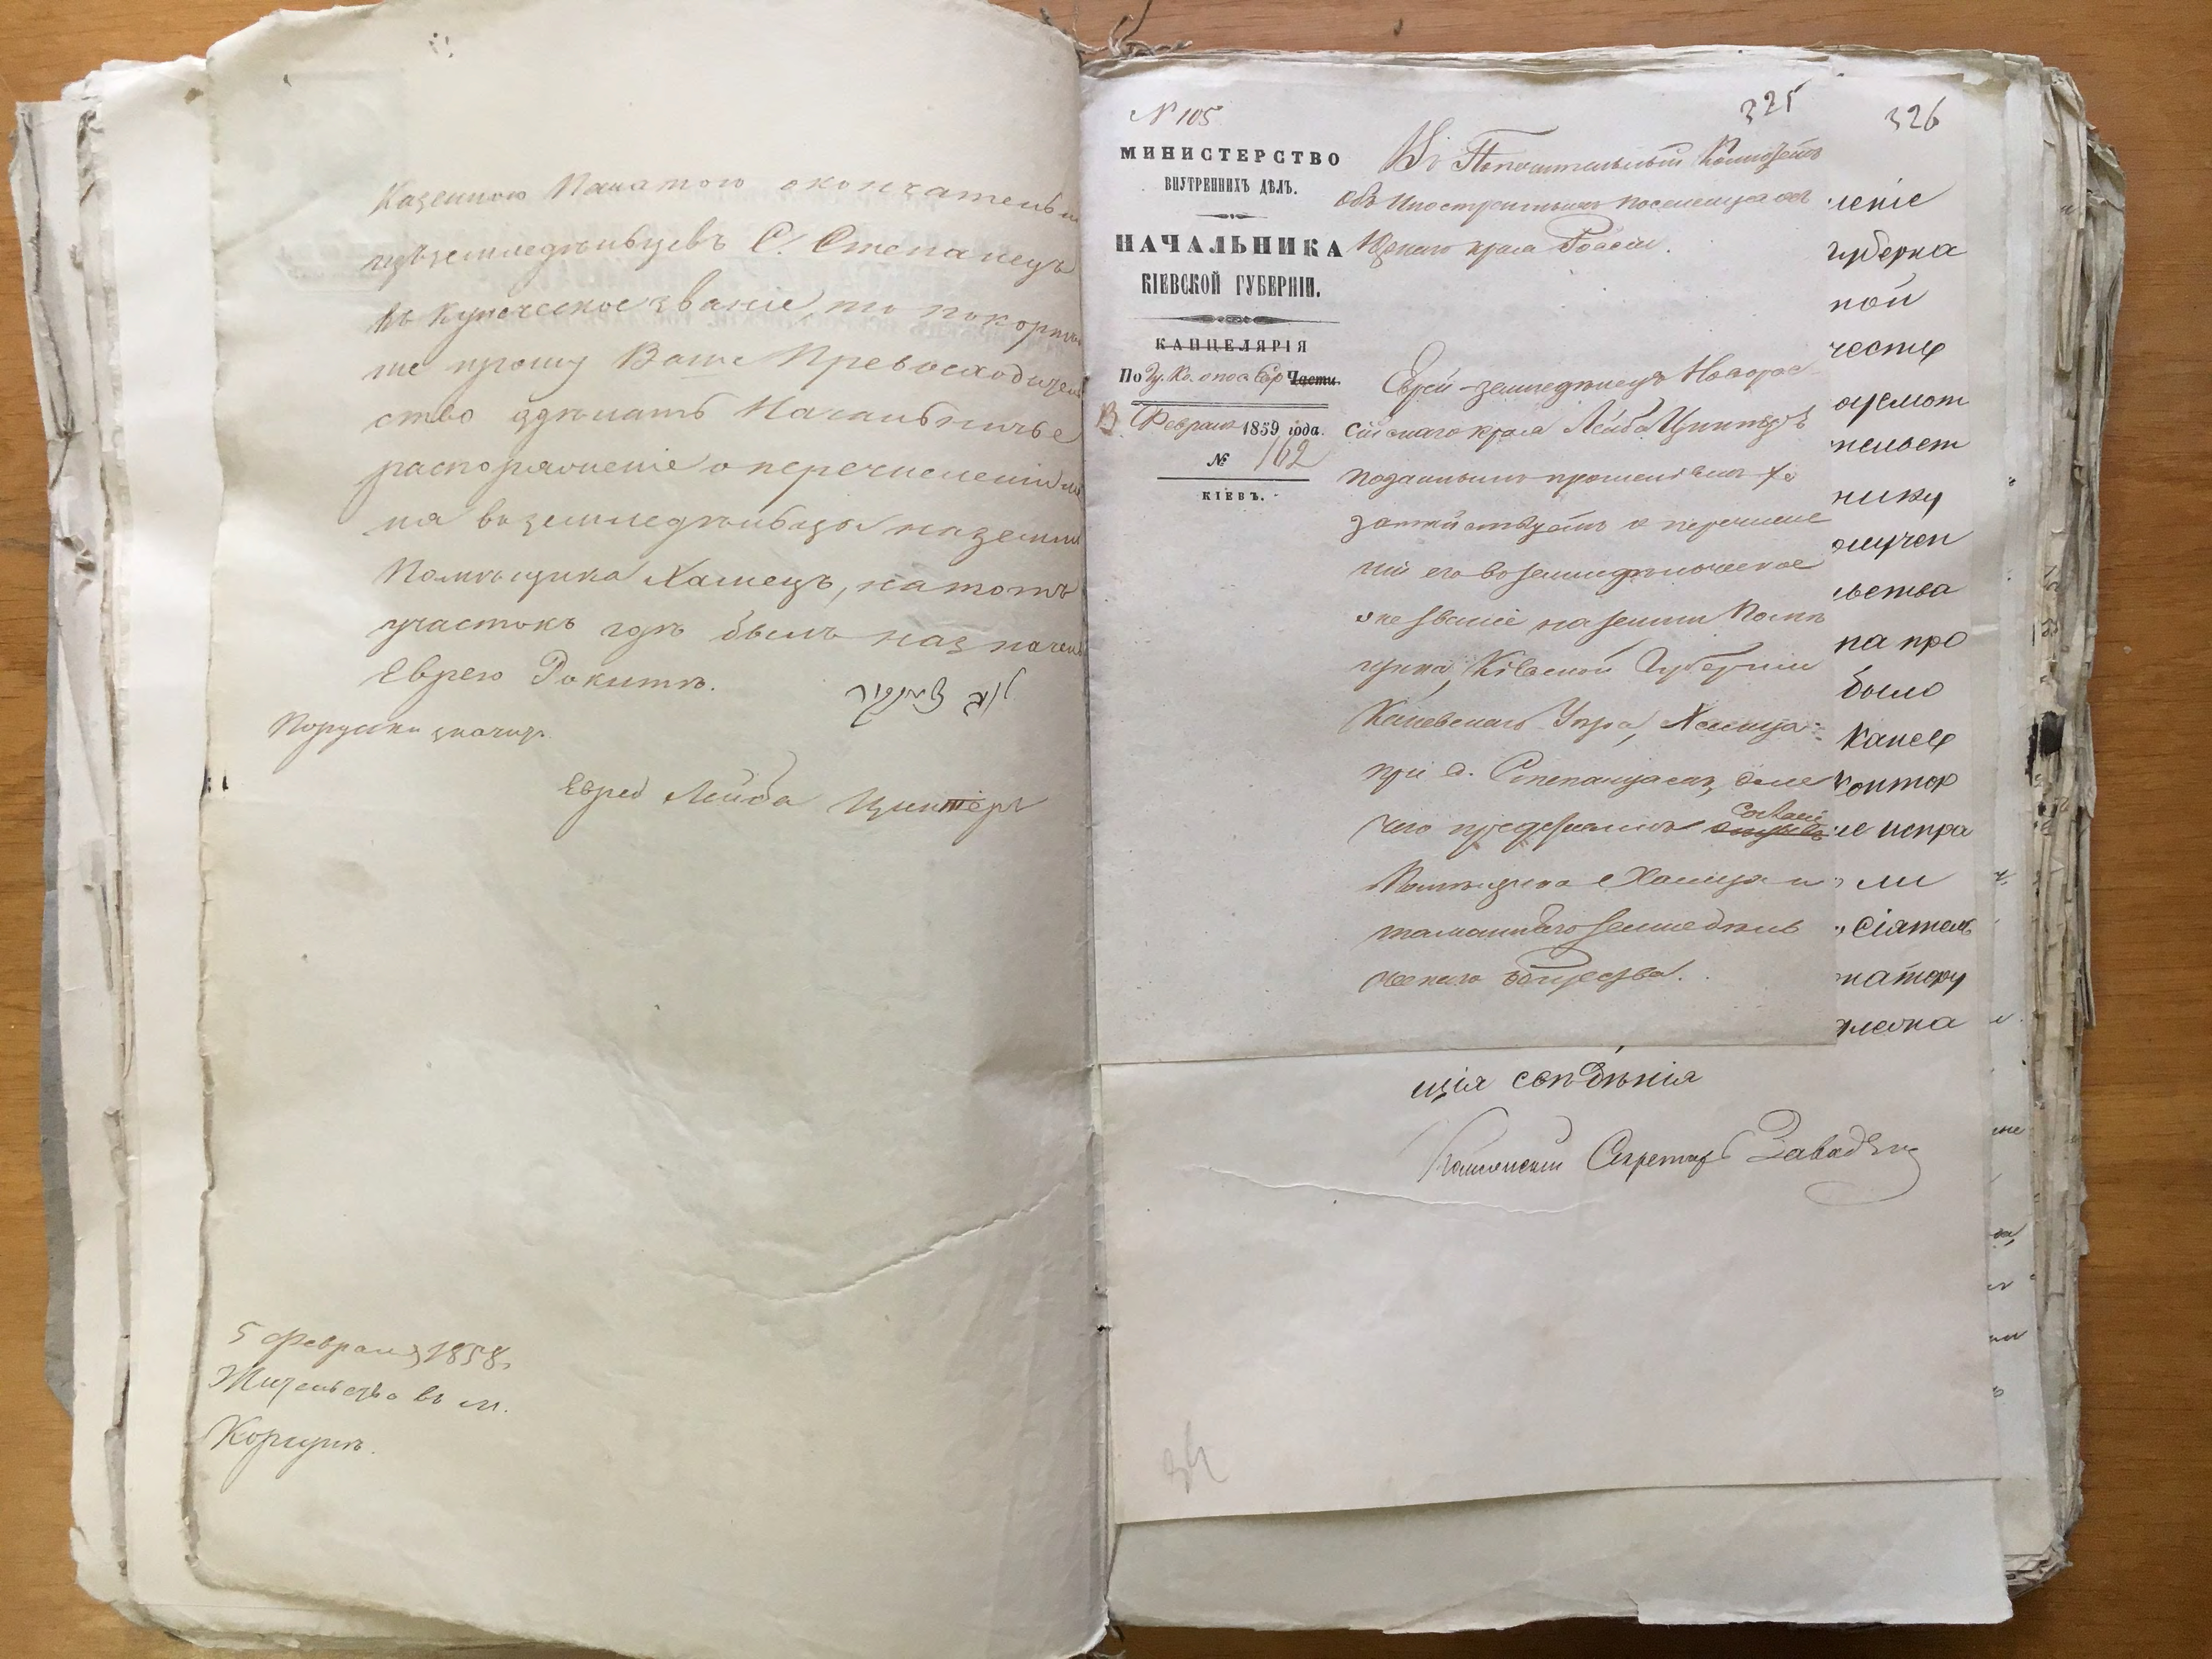 Казенною Палатою окончательн
изъ земледѣльцевъ С. Степанецъ
въ купеческое званіе, то покорнѣй
ше прошу Ваше Превосходитель
ство здѣлать Начальничье
распоряженіе о перечисленіи ме
ня въ земледѣльцы на земли
Помѣщика Хамецъ, на тотъ
участокъ гдѣ былъ назначенъ
Еврею Рокитѣ.
Порусски значитъ
Еврей Лейба Цинтеръ
5 Февраля 1858 г.
Жительство въ м.
Корсунѣ.
N 105
МИНИСТЕРСТВО
ВНУТРЕННИХЪ ДѢЛЪ.
НАЧАЛЬНИКА
КІЕВСКОЙ ГУБЕРНІИ.
КАНЦЕЛЯРІЯ
По Части
Февраля 1859 года.
№ 162
КІЕВЪ.
325
Въ Попечительный Комитетъ
объ Иностранныхъ поселенцахъ
Южнаго края Россіи.
Еврей-земледѣлецъ Новорос
сійскаго края Лейба Цинтеръ
поданнымъ прошеніемъ хо
датайствуетъ о перечисле
ніи его въ земледѣльческое
же званіе на земли Помѣ
щика, Кіевской Губерніи
Каневскаго Уѣзда, Хамеца
при с. Степанцахъ, для
чего представилъ согласіе
Помѣщика Хамеца и
тамошняго земледѣль
ческаго общества.
326
леніе
губерна
ной
нику
ьства
на про
было
Канев
контор
ие испра
ли
Сіятель
натору
ція свѣдѣнія
Секретарь Завадзкі